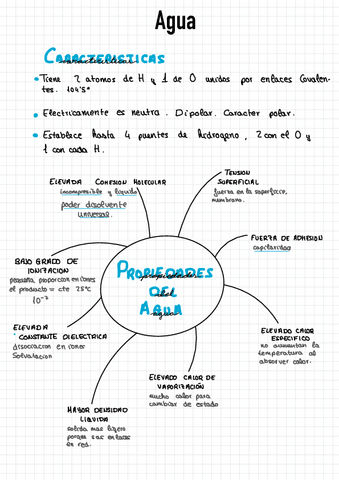 Agua
CARACTERISTICAS
características
• Tiene 2 atomos de H y 1 de O unidos por enlaces covalen-
tes. 104'5°
• Electricamente es neutra. Dipolar. Caracter polar.
• Establece hasta 4 puentes de hidrogeno, 2 con el O y
1 con cada H.
ELEVADA COHESION MOLECULAR
incompresible y liquido
poder disolvente
universal.
TENSION
SUPERFICIAL
fuerza en la superficie,
membrana.
FUERZA DE ADHESION
capilaridad
BAJO GRADO DE
IONIZACION
pequeña proporcion en iones
el producto = cte 25°C
PROPIEDADES
propiedades
DEL
del
AGUA
agua
ELEVADA
CONSTANTE DIELECTRICA
disociacion en iones
Solvatacion
ELEVADO CALOR
ESPECIFICO
no aumentan la
temperatura al
absorver calor.
ELEVADO CALOR DE
VAPORIZACIÓN
mucho calor para
cambiar de estado
MAYOR DENSIDAD
LIQUIDA
solida mas ligero
porque sus enlaces
en red.